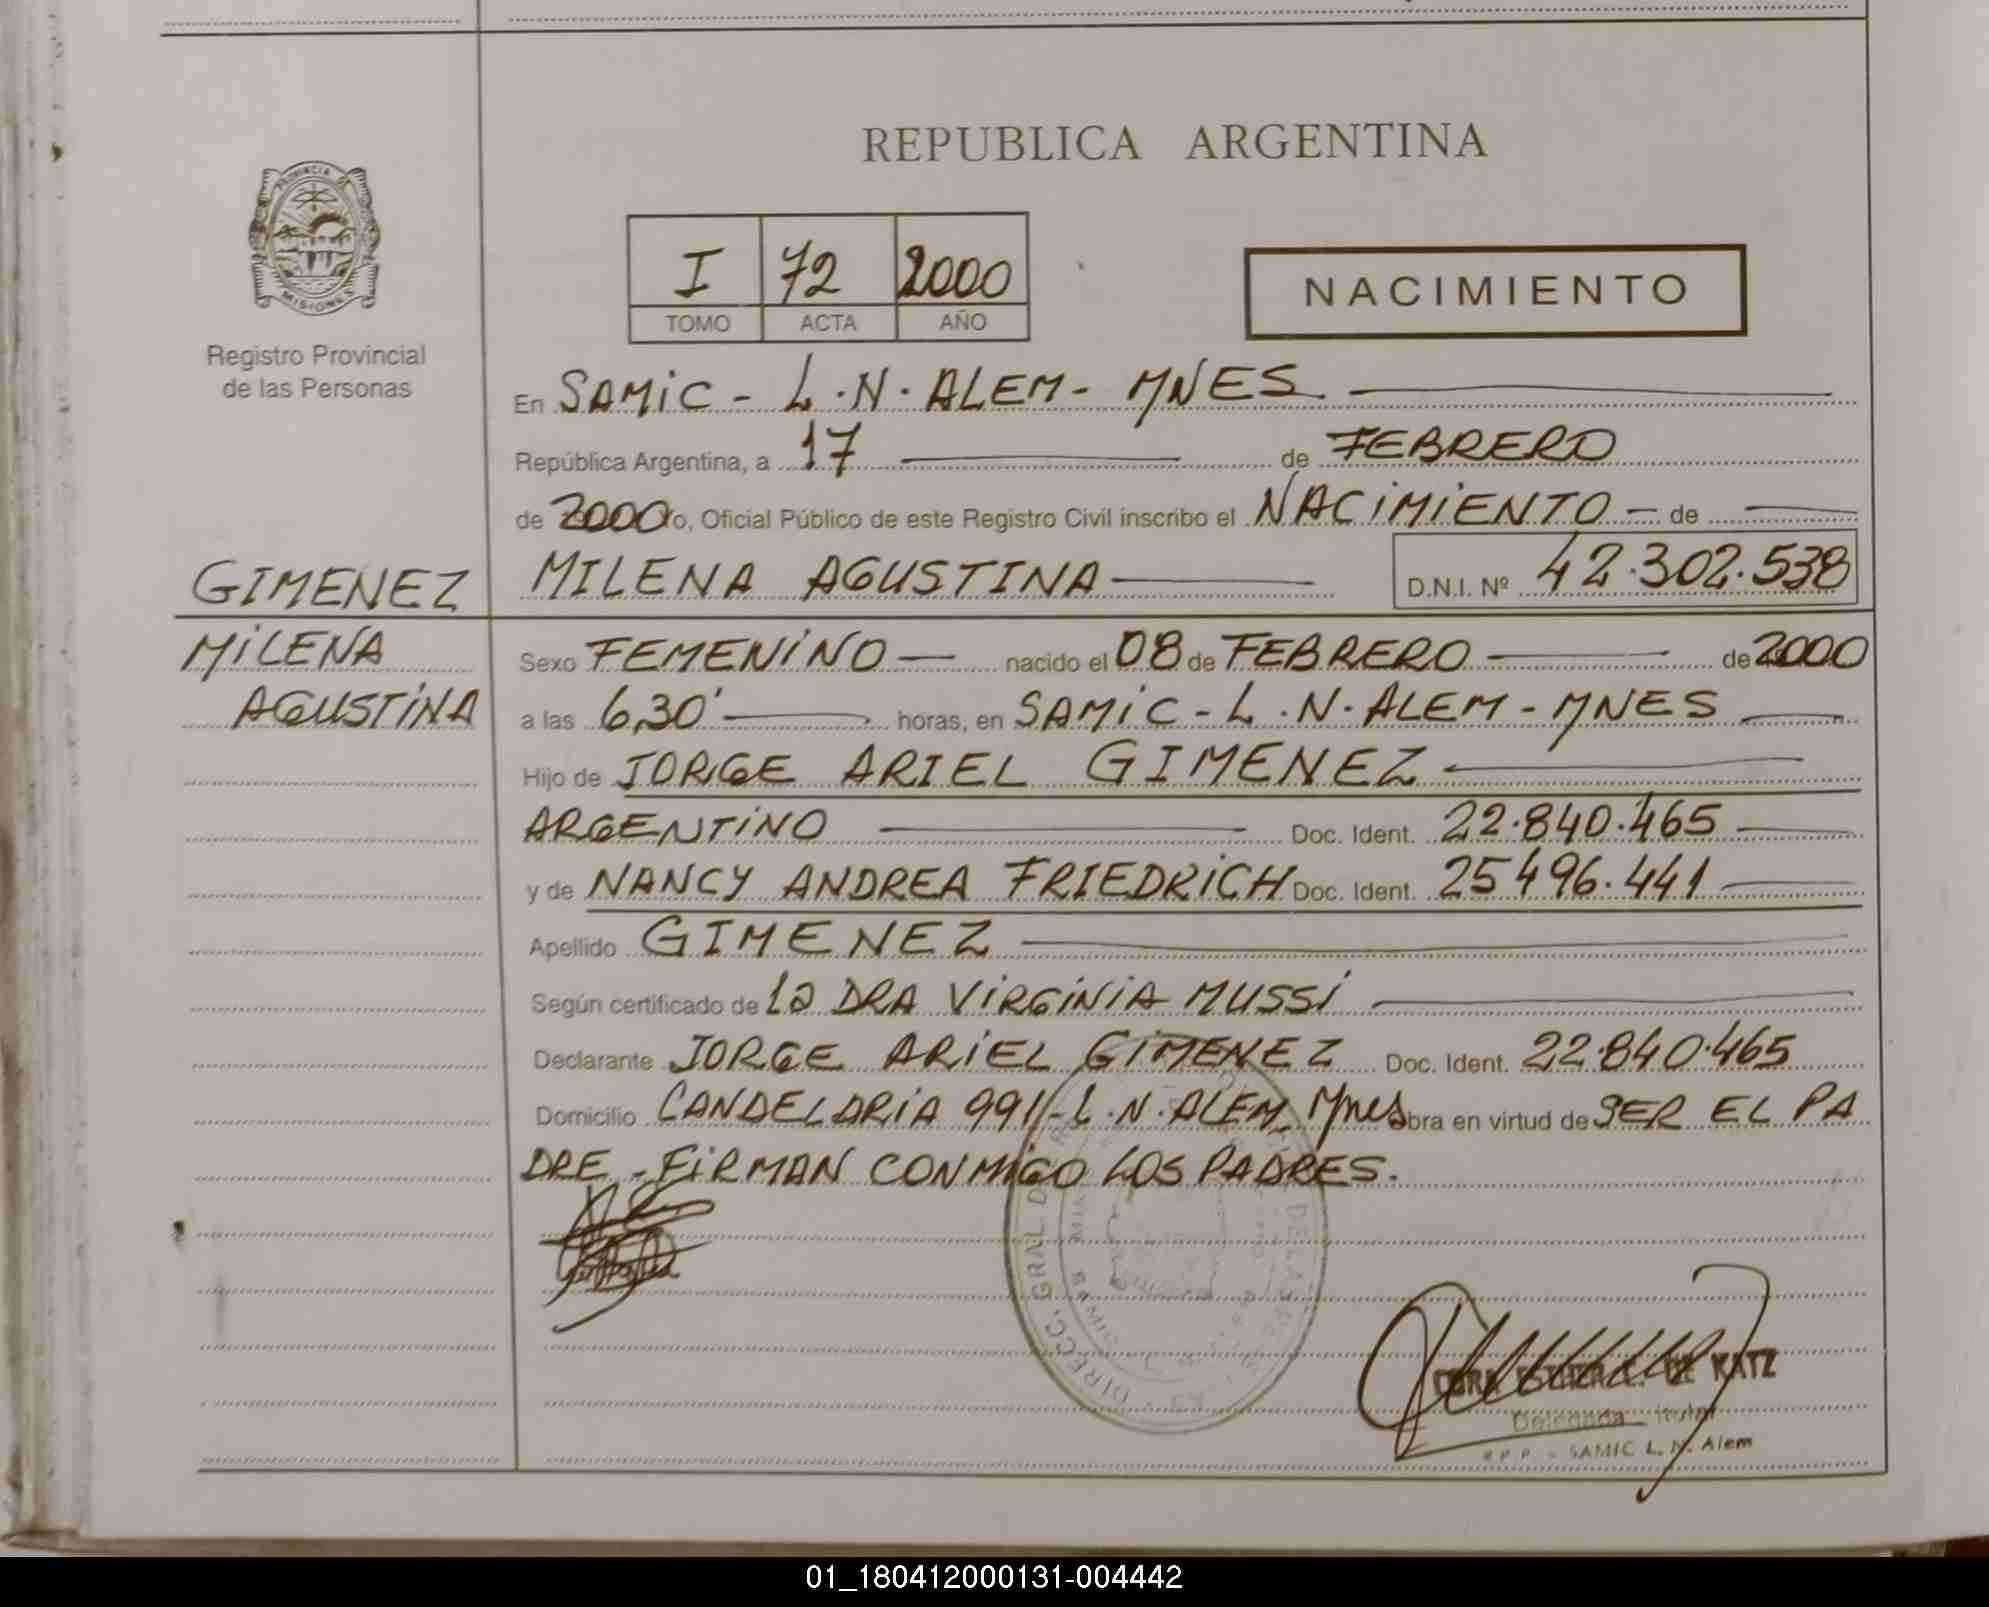 REPUBLICA ARGENTINA
PROVINCIA DE
MISIONES
Registro Provincial
de las Personas
I 72 2000
TOMO ACTA AÑO
NACIMIENTO
En SAMIC - L.N. ALEM - MNES
República Argentina, a 17 de FEBRERO
de 2000 Yo, Oficial Público de este Registro Civil inscribo el NACIMIENTO - de
GIMENEZ MILENA AGUSTINA D.N.I. Nº 42.302.538
MILENA
AGUSTINA
Sexo FEMENINO nacido el 08 de FEBRERO de 2000
a las 6,30' horas, en SAMIC - L.N. ALEM - MNES
Hijo de JORGE ARIEL GIMENEZ
ARGENTINO Doc. Ident. 22.840.465
y de NANCY ANDREA FRIEDRICH Doc. Ident. 25496.441
Apellido GIMENEZ
Según certificado de la DRA VIRGINIA MUSSI
Declarante JORGE ARIEL GIMENEZ Doc. Ident. 22.840.465
Domicilio CANDELARIA 991 - L.N. ALEM - Mnes obra en virtud de SER EL PA
DRE - FIRMAN CONMIGO LOS PADRES.
DIRECC. GRAL. DE LAS
DE KATZ
Delegada Titular
R.P.P. - SAMIC L. N. Alem
01_180412000131-004442